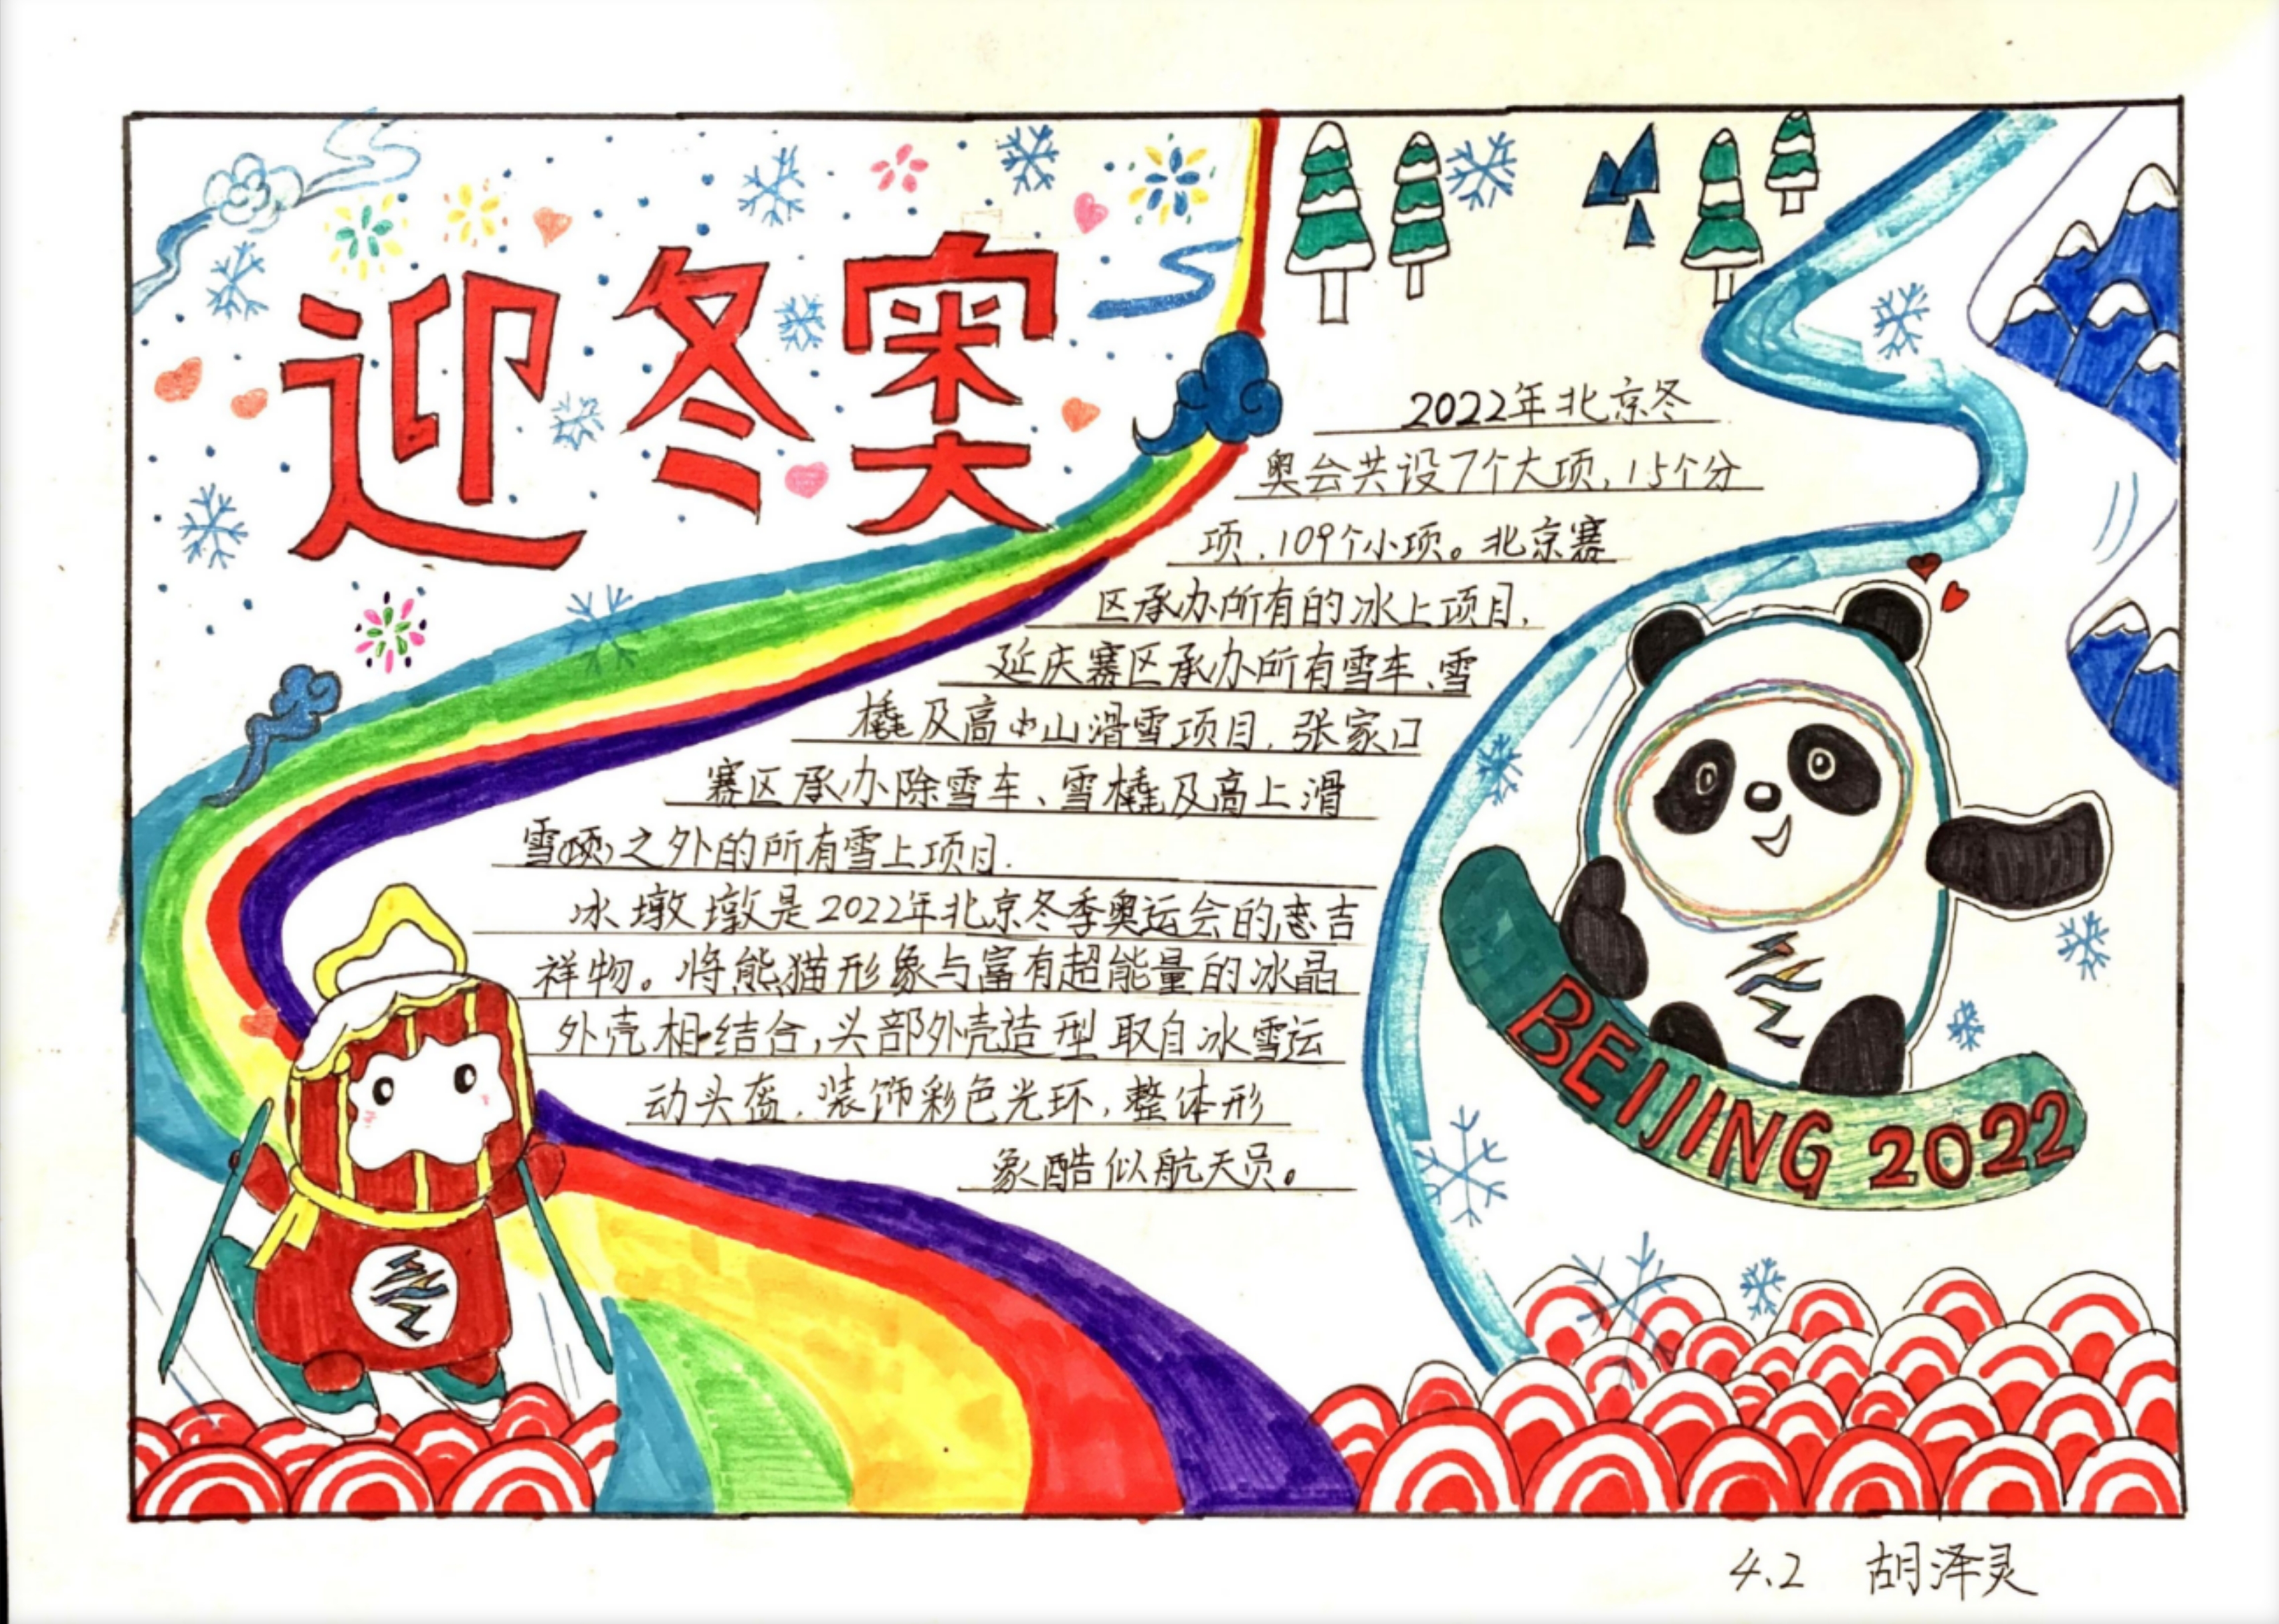 迎冬奥
2022年北京冬
奥会共设7个大项,15个分
项,109个小项。北京赛
区承办所有的冰上项目,
延庆赛区承办所有雪车、雪
橇及高山滑雪项目,张家口
赛区承办除雪车、雪橇及高上滑
雪(项)之外的所有雪上项目.
冰墩墩是2022年北京冬季奥运会的吉
祥物。将熊猫形象与富有超能量的冰晶
外壳相结合,头部外壳造型取自冰雪运
动头盔,装饰彩色光环,整体形
象酷似航天员。
BEIJING 2022
4.2 胡泽灵